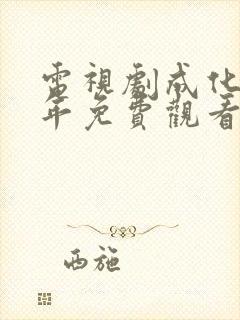 電視劇成化
年免費觀看
西施